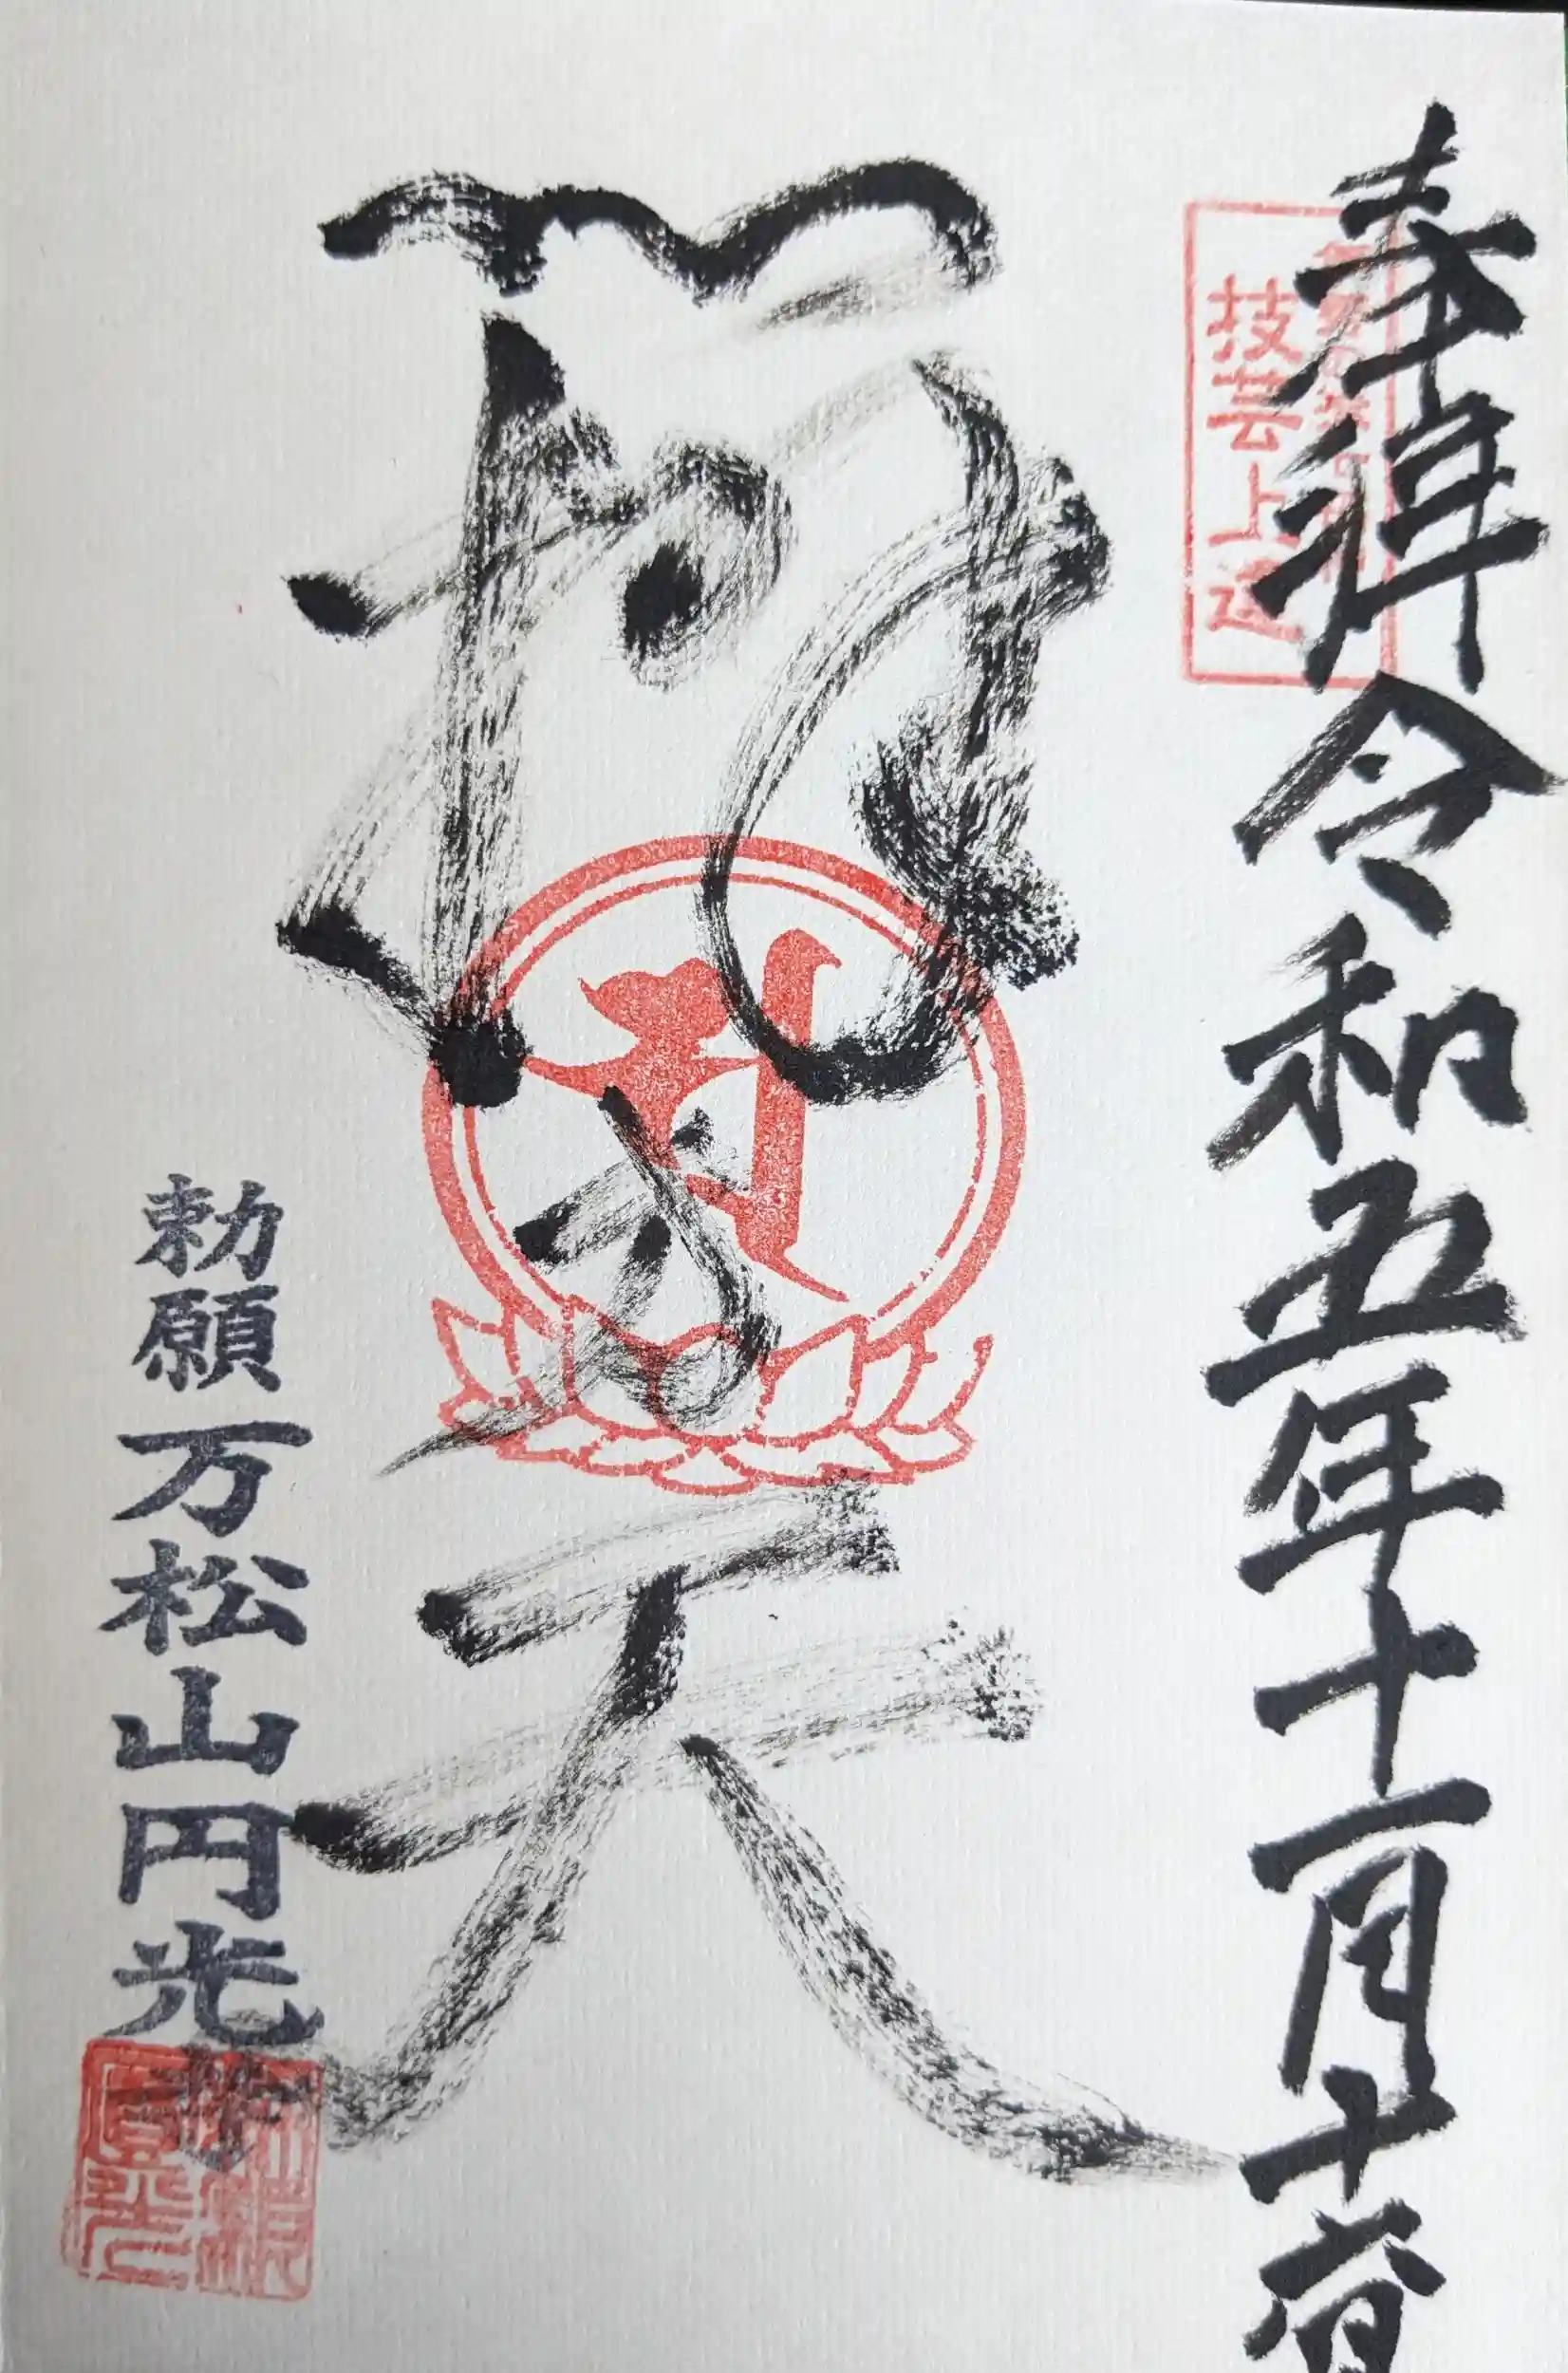 奉拝令和五年十一月十六日
技芸上達
才天
勅願 万松山円光寺